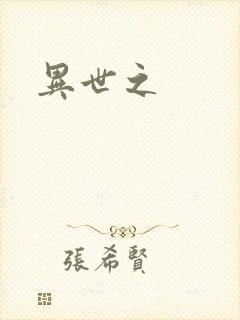 異世之
張希賢